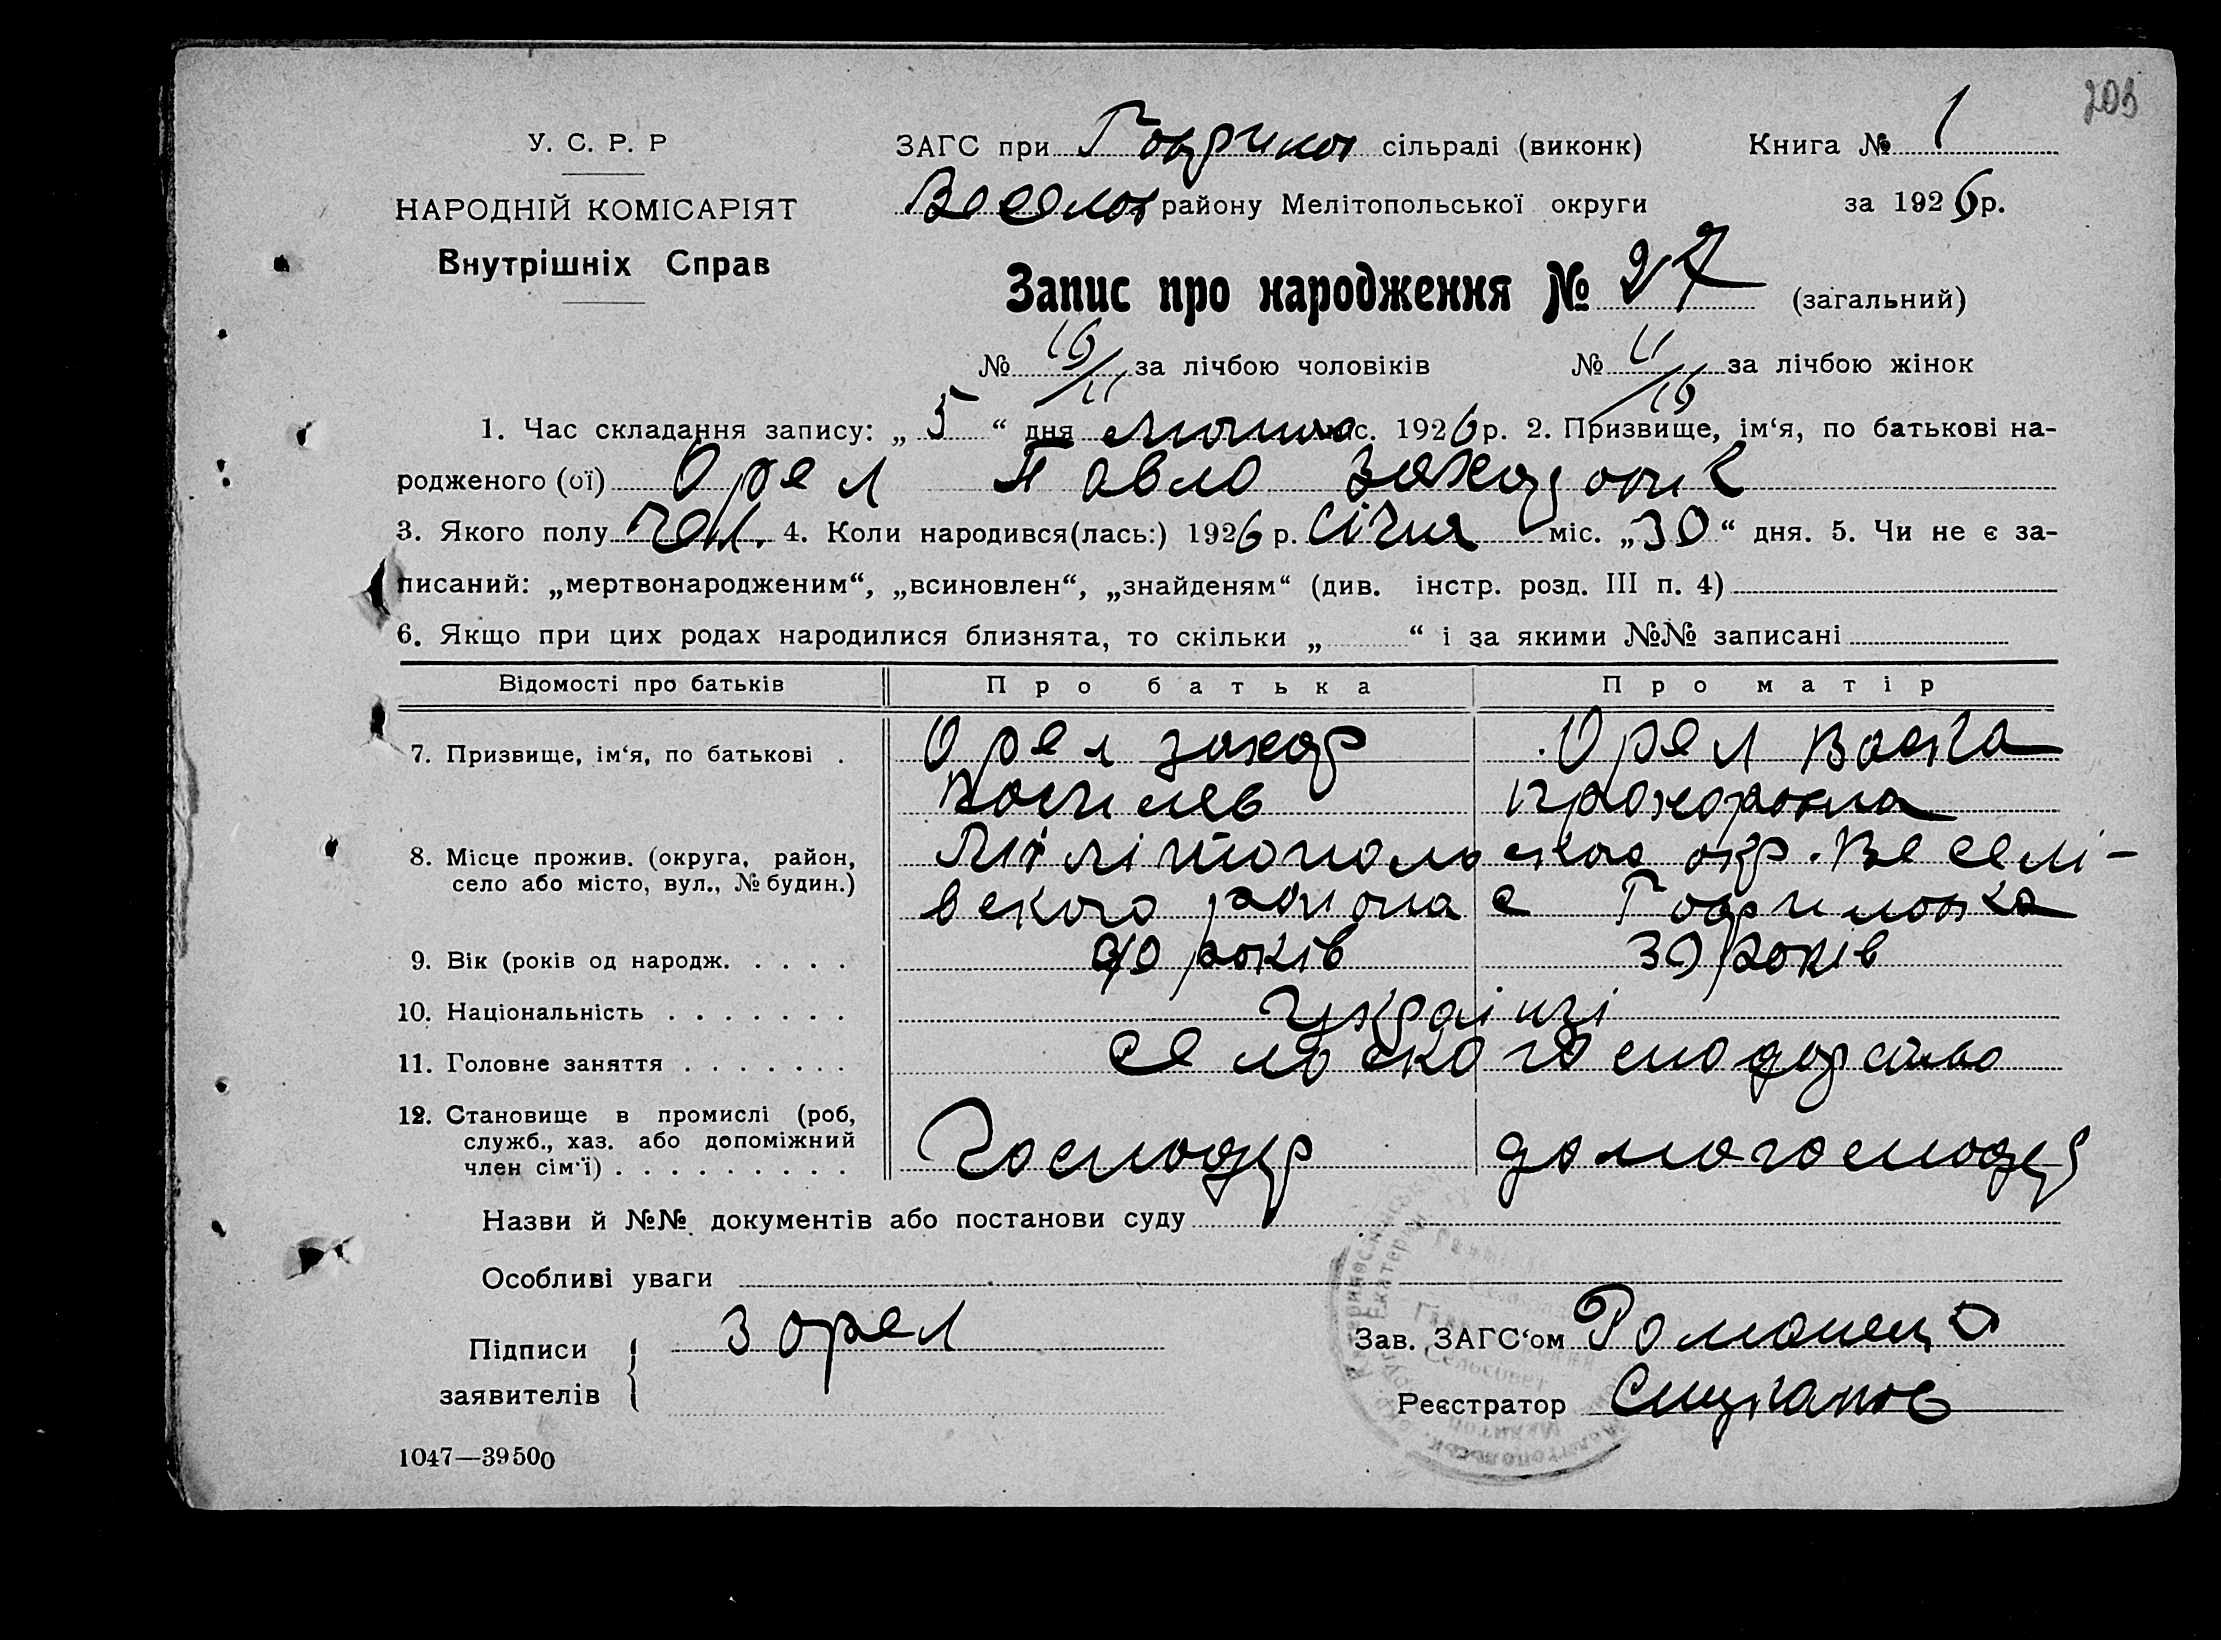 203
У. С. Р. Р
НАРОДНІЙ КОМІСАРІЯТ
Внутрішніх Справ
ЗАГС при Гаврилов сільраді (виконк)
Веселов району Мелітопольської округи
Книга № 1
за 1926 р.
Запис про народження № 27 (загальний)
№ 16/11 за лічбою чоловіків № 11/16 за лічбою жінок
1. Час складання запису: „5“ дня лютого міс. 1926 р. 2. Призвище, ім‘я, по батькові на-
родженого (ої) Орел Павло Захарович
3. Якого полу чол. 4. Коли народився(лась:) 1926 р. січня міс. „30“ дня. 5. Чи не є за-
писаний: „мертвонародженим“, „всиновлен“, „знайденям“ (див. інстр. розд. III п. 4)
6. Якщо при цих родах народилися близнята, то скільки „ “ і за якими №№ записані
Відомості про батьків Про батька Про матір
7. Призвище, ім‘я, по батькові . Орел Захар Орел
8. Місце прожив. (округа, район, село або місто, вул., № будин.) Мілітопольського окр. Веселі-
вского района с Гавриловка
9. Вік (років од народж. . . . . 40 років 30 років
10. Національність . . . . . . . Українці
11. Головне заняття . . . . . . . сельско господарство
12. Становище в промислі (роб,
служб., хаз. або допоміжний
член сім‘ї) . . . . . . . . . Господар домогосподар
Назви й №№ документів або постанови суду
Особливі уваги
Підписи
заявителів
З Орел
Зав. ЗАГС‘ом Романец
Реєстратор
1047—39500